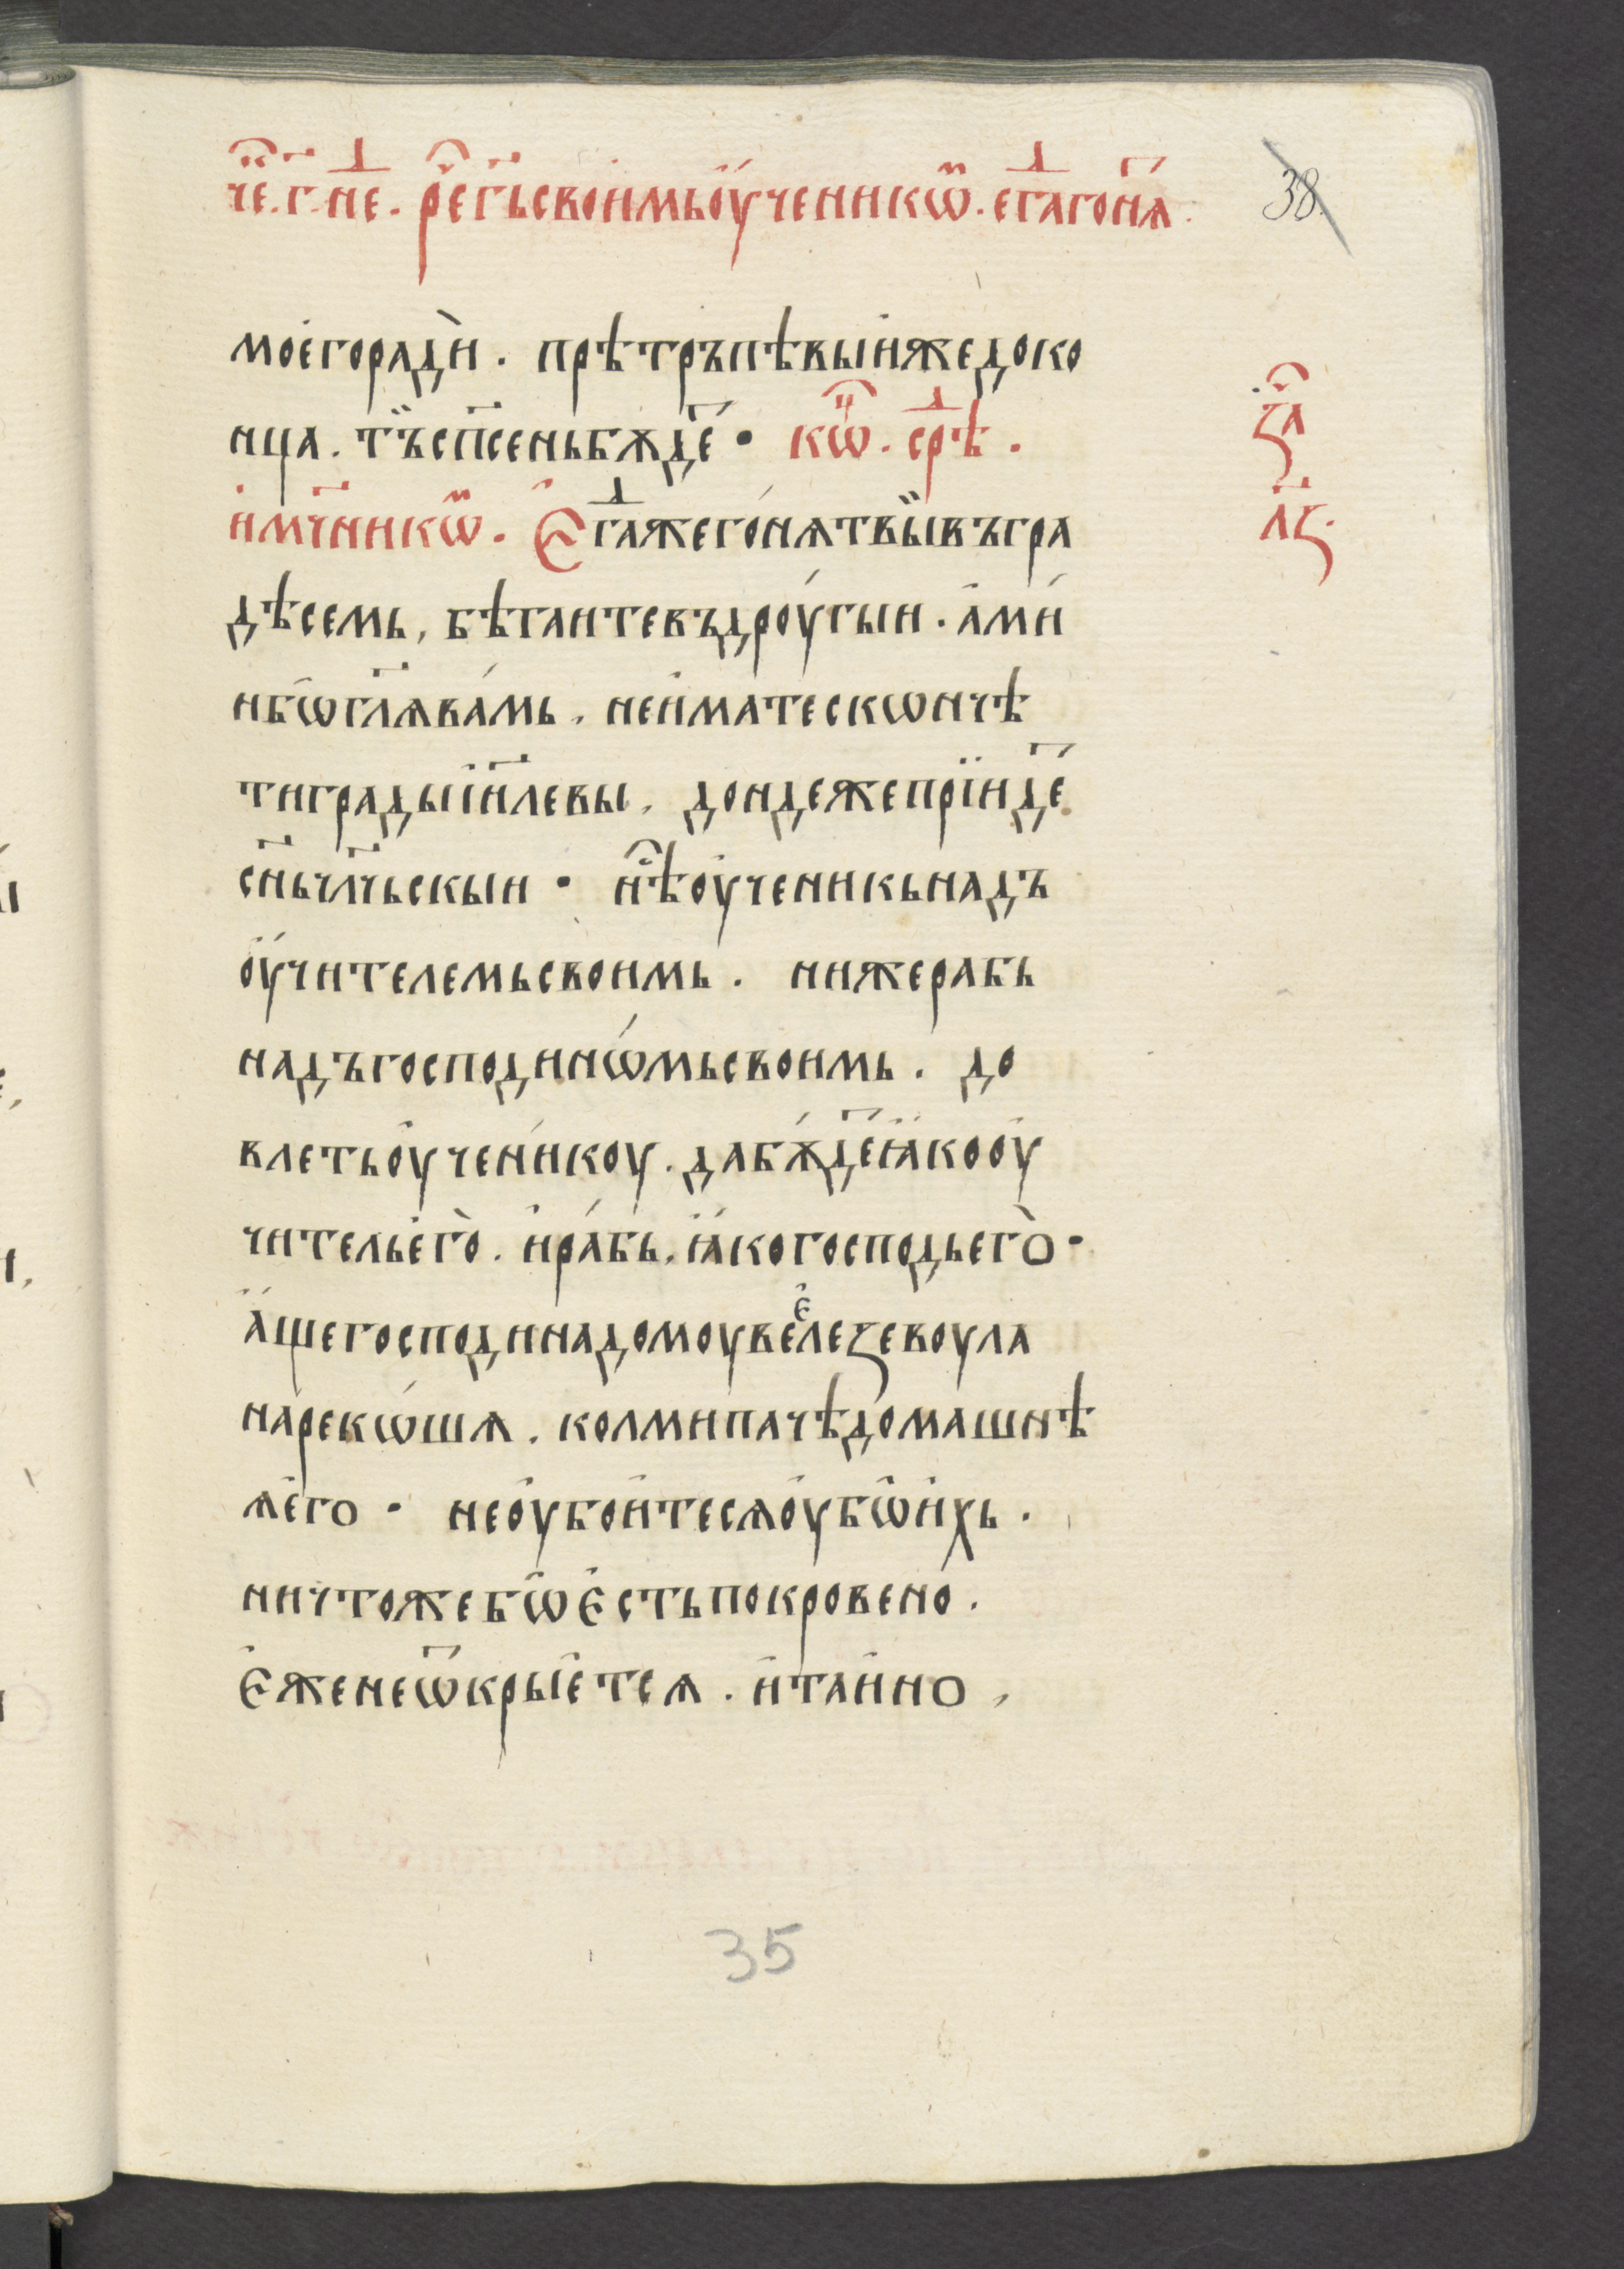 че҃. г҃. не҃ⷣ. ре҃ г҃ь своимь оу҆ченикѡⷨ. егⷣа гоня҃ⷮ. 38
моего ради̇̀. прѣтръпѣвыи же до ко
нца. тъ̏ сп҃сень бѫде҃ⷮ. кѡⷰ҇. срⷣѣ.
и҆ мч҃никѡⷨ. Єгⷣа же го́нѧт вы̏ въ гра
дѣ семь, бѣгаите въ дроу́гыи. а҆ми́
нь бѡ гл҃ѧ ва́мь. не и҆мате скѡнчѣ
ти грады і҆и҃левы. дондеже прїиде҃ⷮ
сн҃ь чл҃чьскыи. нѣⷭ҇ оу҆ченикь надъ
оу҆чителемь своимь. ни же рабь
надъ господинѡ́мь своимь. до
влеть оу҆чени́коу. да бѫ́де҃ⷮ ꙗ҆ко оу҆
читель е҆го̀. и҆ ра́бь. ꙗ҆ко господь его̀.
а҆́ще господина домоу веелезевоула
на́рекѡ́шѧ. колми паче домашнѣ
ѧ е҆го. не оу҆бои́те сѧ оу҆бѡ и҆́хь.
ничтоже бѡ є҆сть покровено́.
є҆же не ѿкрые҆т сѧ. и҆ таи́но,
за҃ⷱ
лꙁ҃.
35